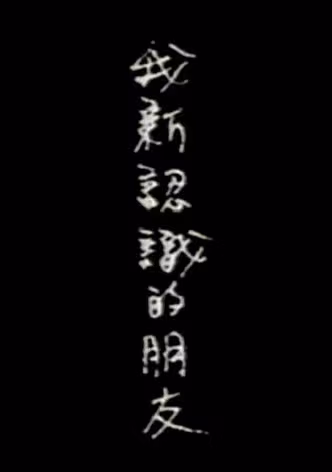 我新認識的朋友